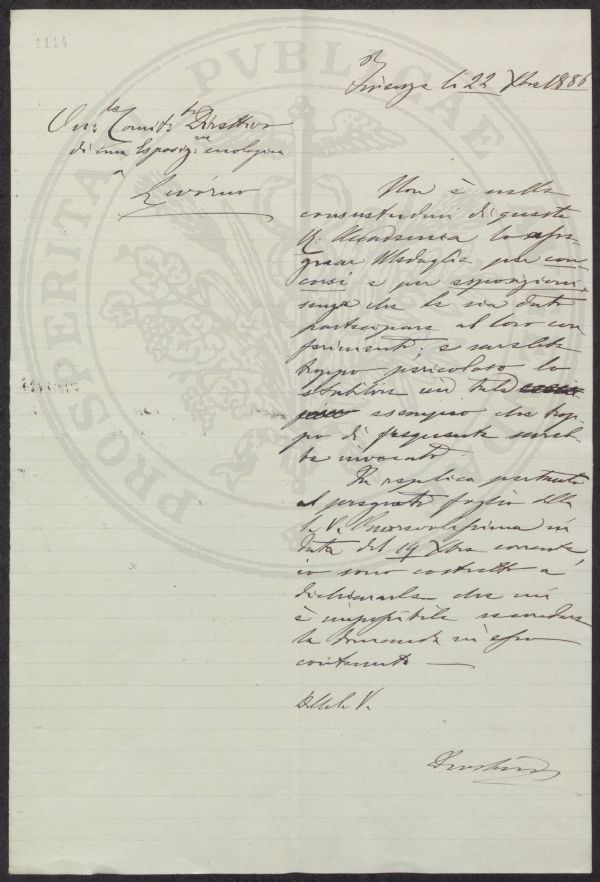 1114
Firenze li 22 Xbre 1886
Onor. Comit. Direttivo
di una Esposiz.ne enologica
a
Livorno
Non è nelle
consuetudini di questa
R. Accademia lo
Medaglie per con
corsi e per esposizioni
senza che le sia dato
partecipare al loro con
ferimento; e sarebbe
troppo pericoloso lo
stabilire un tale
esempio che trop
po di frequente sareb
be invocato
In replica pertanto
al pregiato foglio della
S. V. Onorevolissima in
data del 19 Xbre corrente
io sono costretto a
dichiararle che mi
è impossibile
la domanda in esso
contenuta
Della S. V.
PROSPERITATI PVBLICAE